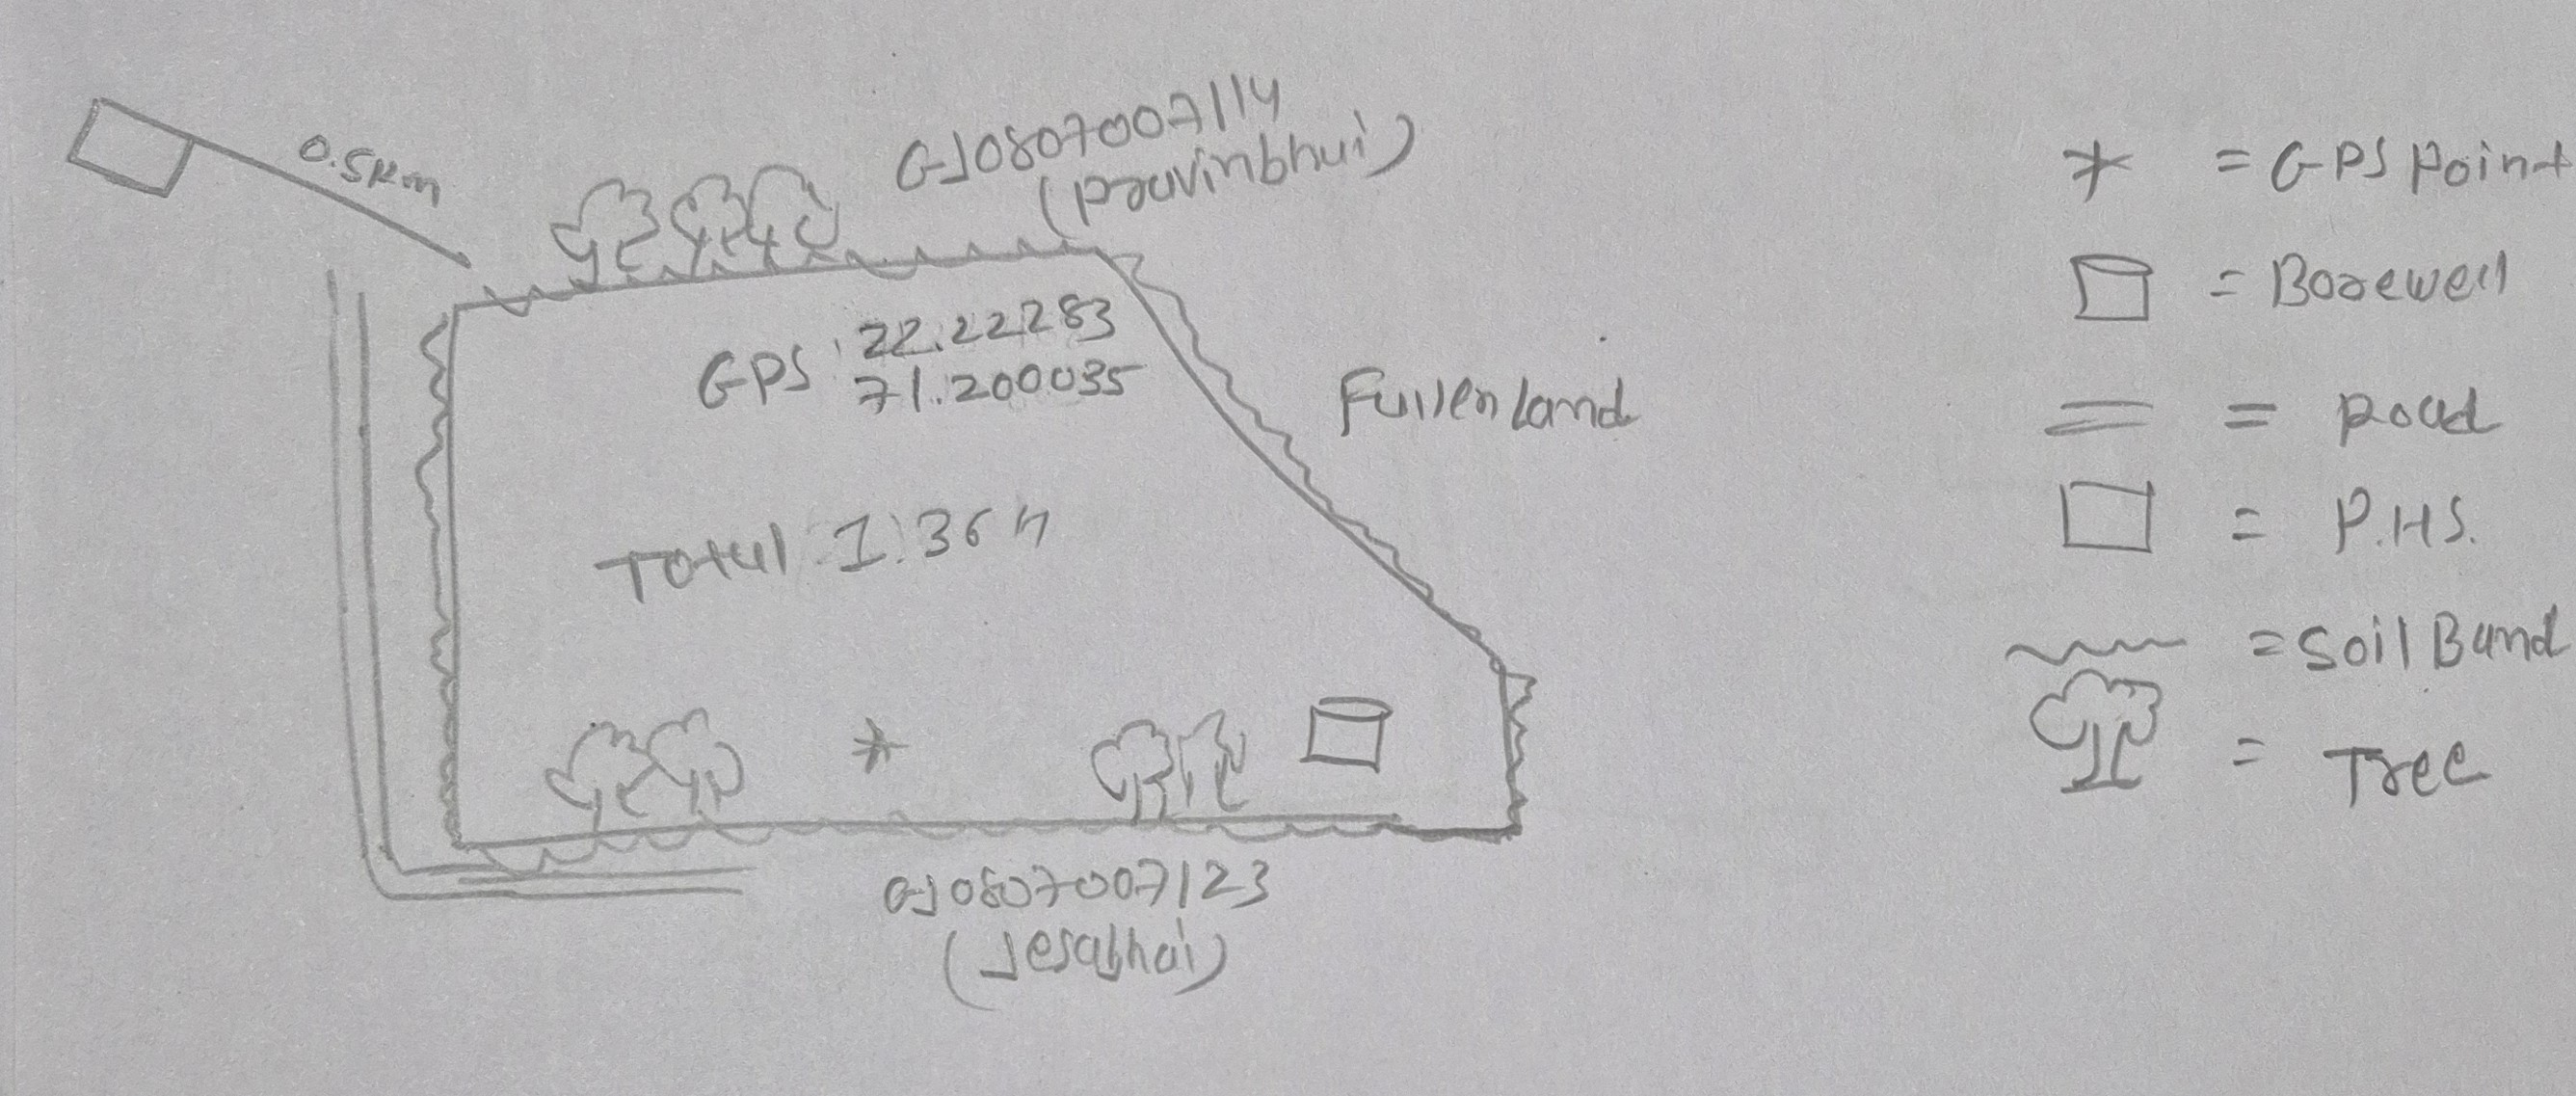 0.5km
GJ0807007114
(pravinbhai)
GPS: 22.22283
71.200035
Fallen Land
Total 1.36 h
GJ0807007123
(Jesabhai)
* = GPS Point
= Borewell
= Road
= P.H.S.
= Soil Bund
= Tree